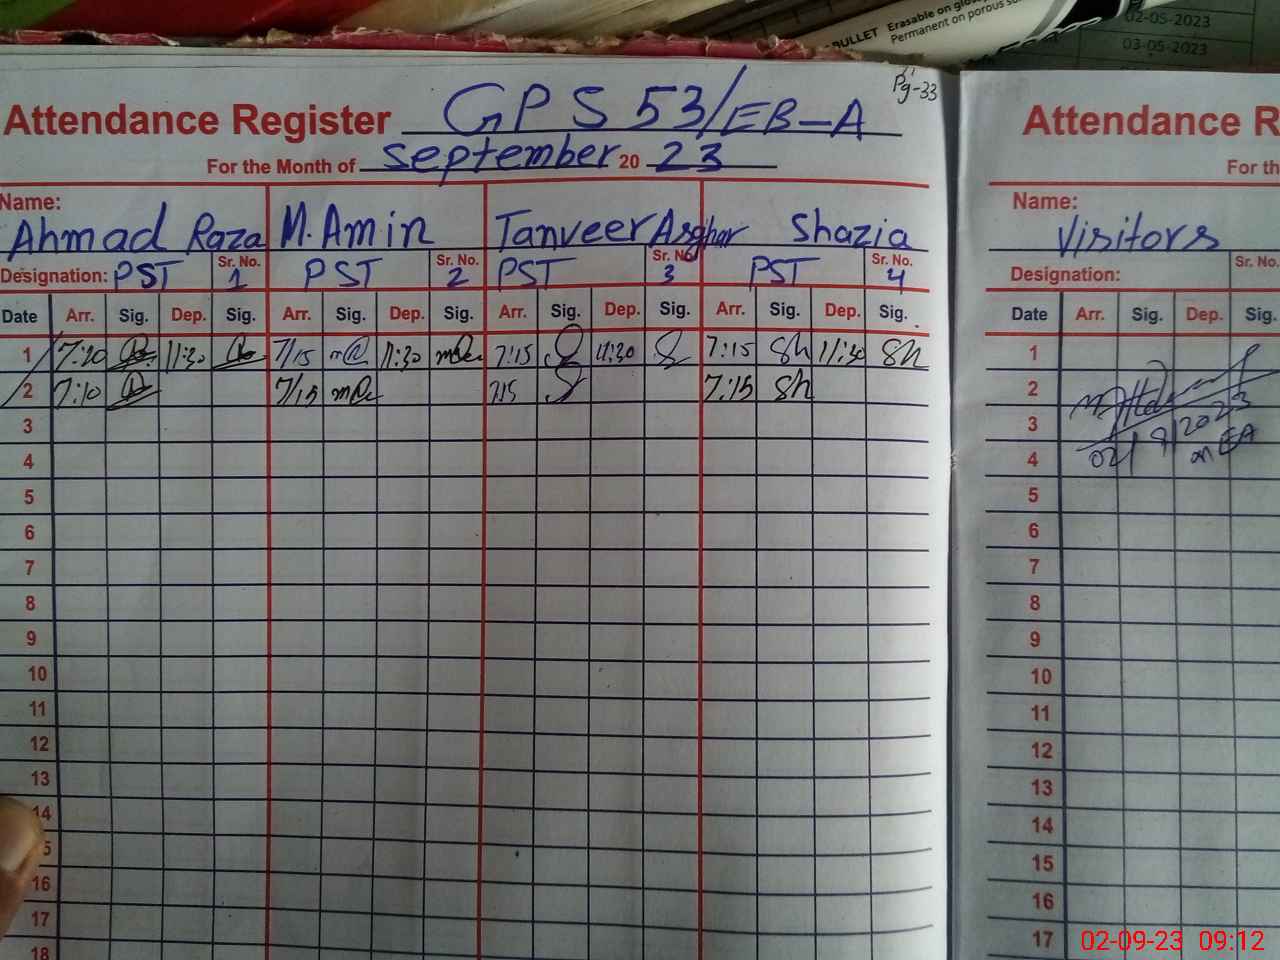 BULLET Erasable on glo
Permanent on porous
02-05-2023
03-05-2023
Pg-33
Attendance Register GPS 53/EB-A
For the Month of September 20 23
Name:
Ahmad Raza M. Amin Tanveer Asghar Shazia
Designation: PST Sr. No. 1 PST Sr. No. 2 PST Sr. No. 3 PST Sr. No. 4
Date Arr. Sig. Dep. Sig. Arr. Sig. Dep. Sig. Arr. Sig. Dep. Sig. Arr. Sig. Dep. Sig.
1 11:30 7/15 11:30 7:15 11:30 7:15 Sh 11:30 Sh
2 7:10 7/15 7:15 7:15 Sh
3
4
5
6
7
8
9
10
11
12
13
14
5
16
17
18
Attendance R
For th
Name:
Visitors
Designation: Sr. No.
Date Arr. Sig. Dep. Sig.
1
2
3
4
02/9/2023
5
6
7
8
9
10
11
12
13
14
15
16
17
02-09-23 09:12